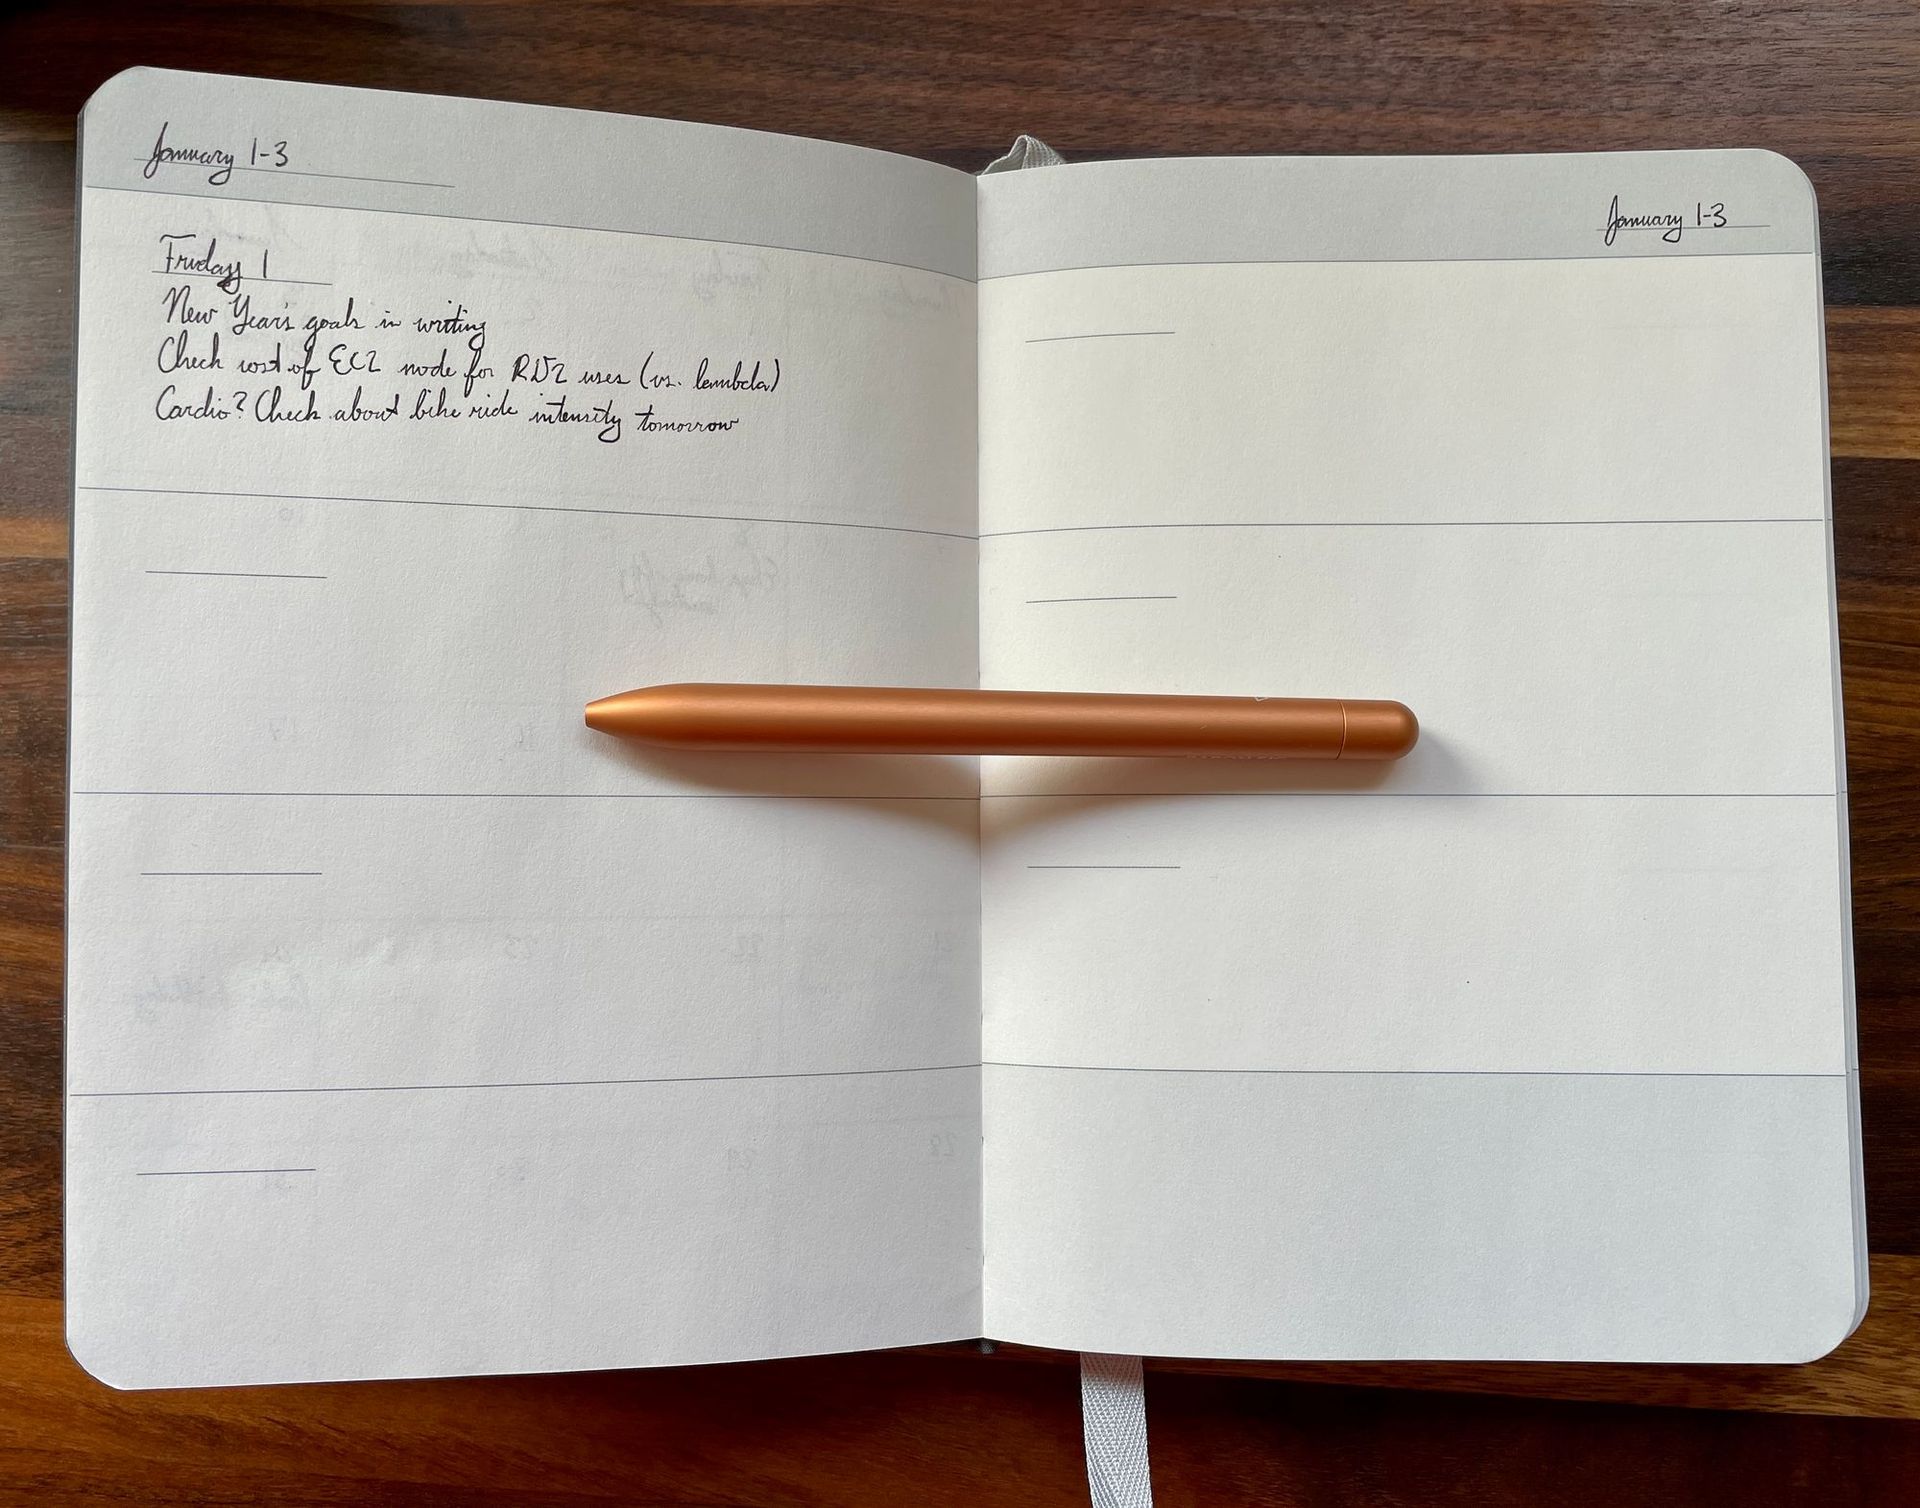 January 1-3
Friday 1
New Year's goals in writing
Check cost of EC2 node for RD2 uses (vs. lambda)
Cardio? Check about bike ride intensity tomorrow
January 1-3